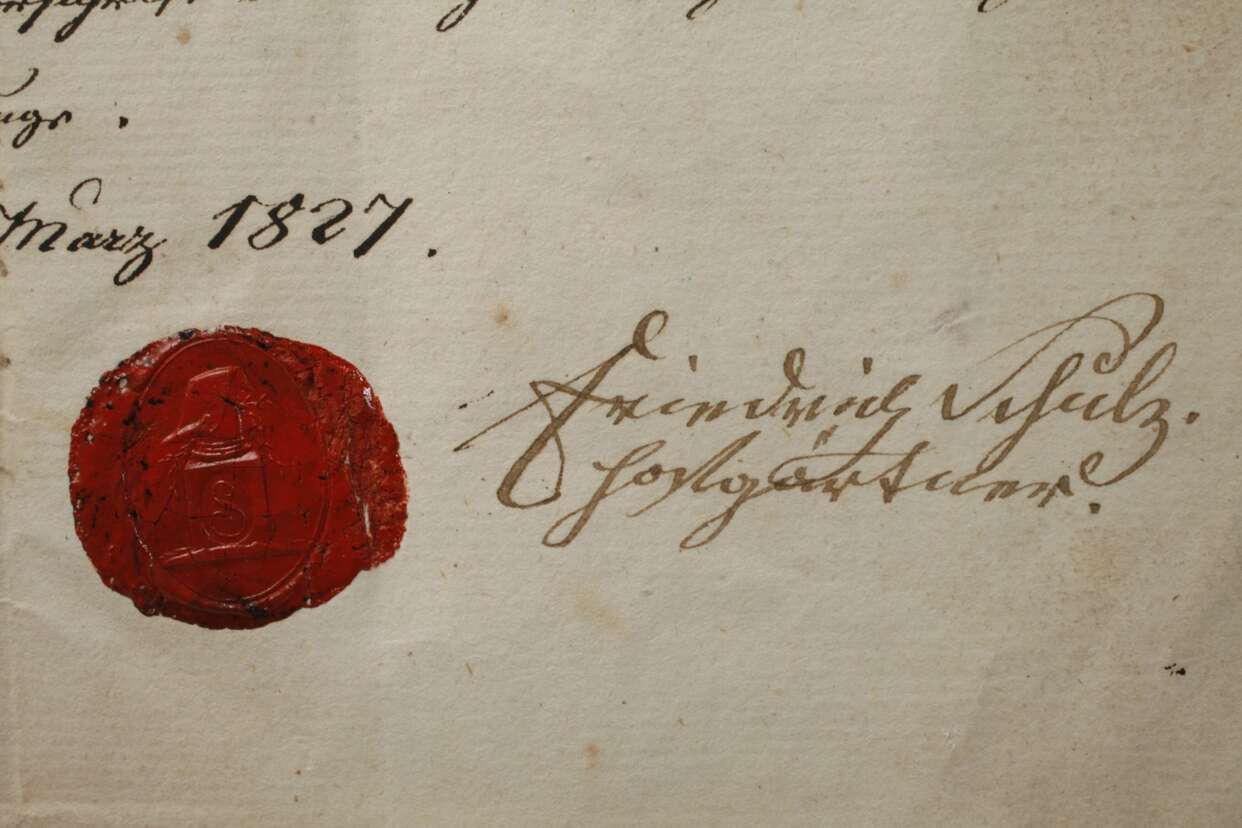 März 1827.
S
Friedrich Schulz.
Hofgärtner.